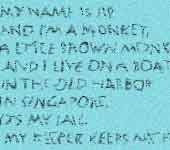 MY NAME IS JIP
AND I'M A MONKEY,
A LITTLE BROWN MONK
AND I LIVE ON A BOAT
IN THE OLD HARBOR
IN SINGAPORE.
IT'S MY JAIL.
MY KEEPER KEEPS ME